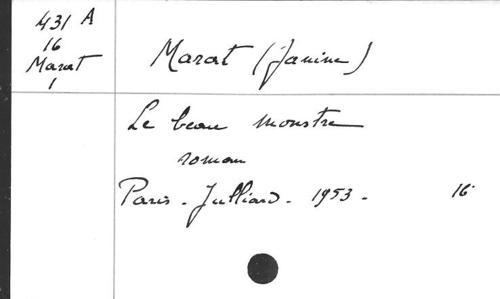 431 A
16
Marat
1
Marat (Janine)
Le beau monstre
roman
Paris - Julliard - 1953 - 16